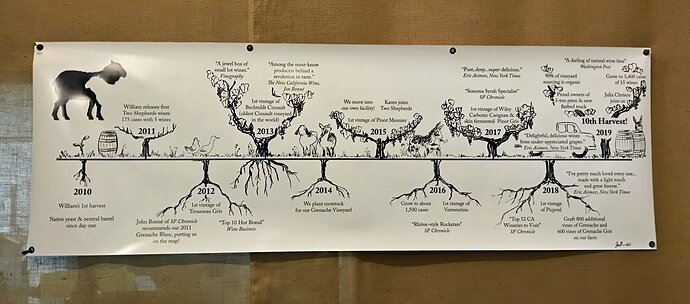 "A jewel box of
small lot wines."
Vinography
"Among the must-know
producers behind a
revolution in taste."
The New California Wine,
Jon Bonné
"Pure, deep...super-delicious."
Eric Asimov, New York Times
"A darling of natural wine fans"
Washington Post
90% of vineyard
sourcing is organic
Grow to 3,400
cases of 15 wines
William releases first
Two Shepherds wines
175 cases with 5 wines
1st vintage of
Bechtholdt Cinsault
(oldest Cinsault vineyard
in the world)
We move into
our own facility!
Karen joins
Two Shepherds
"Sonoma Syrah Specialist"
SF Chronicle
Proud owners of
5-ton press & new
flatbed truck
Julia Christo
joins us
1st vintage of Pinot Meunier
1st vintage of Wiley
Carbonic Carignan &
skin fermented Pinot Gris
10th Harvest!
2011
2013
2015
2017
2019
"Delightful, delicious wines
from under-appreciated grapes."
Eric Asimov, New York Times
2010
2012
2014
2016
2018
William's 1st harvest
Native yeast & neutral barrel
since day one
1st vintage of
Trousseau Gris
John Bonné of SF Chronicle
recommends our 2011
Grenache Blanc, putting us
on the map!
"Top 10 Hot Brand"
Wine Business
We plant rootstock
for our Grenache Vineyard
Grow to about
1,500 cases
1st vintage of
Vermentino
"Rhône-style Rockstars"
SF Chronicle
1st vintage of
Picpoul
"Top 52 CA
Wineries to Visit"
SF Chronicle
"I've pretty much loved every one...
made with a light touch
and great finesse."
Eric Asimov, New York Times
Graft 800 additional
vines of Grenache and
600 vines of Grenache Gris
on our farm